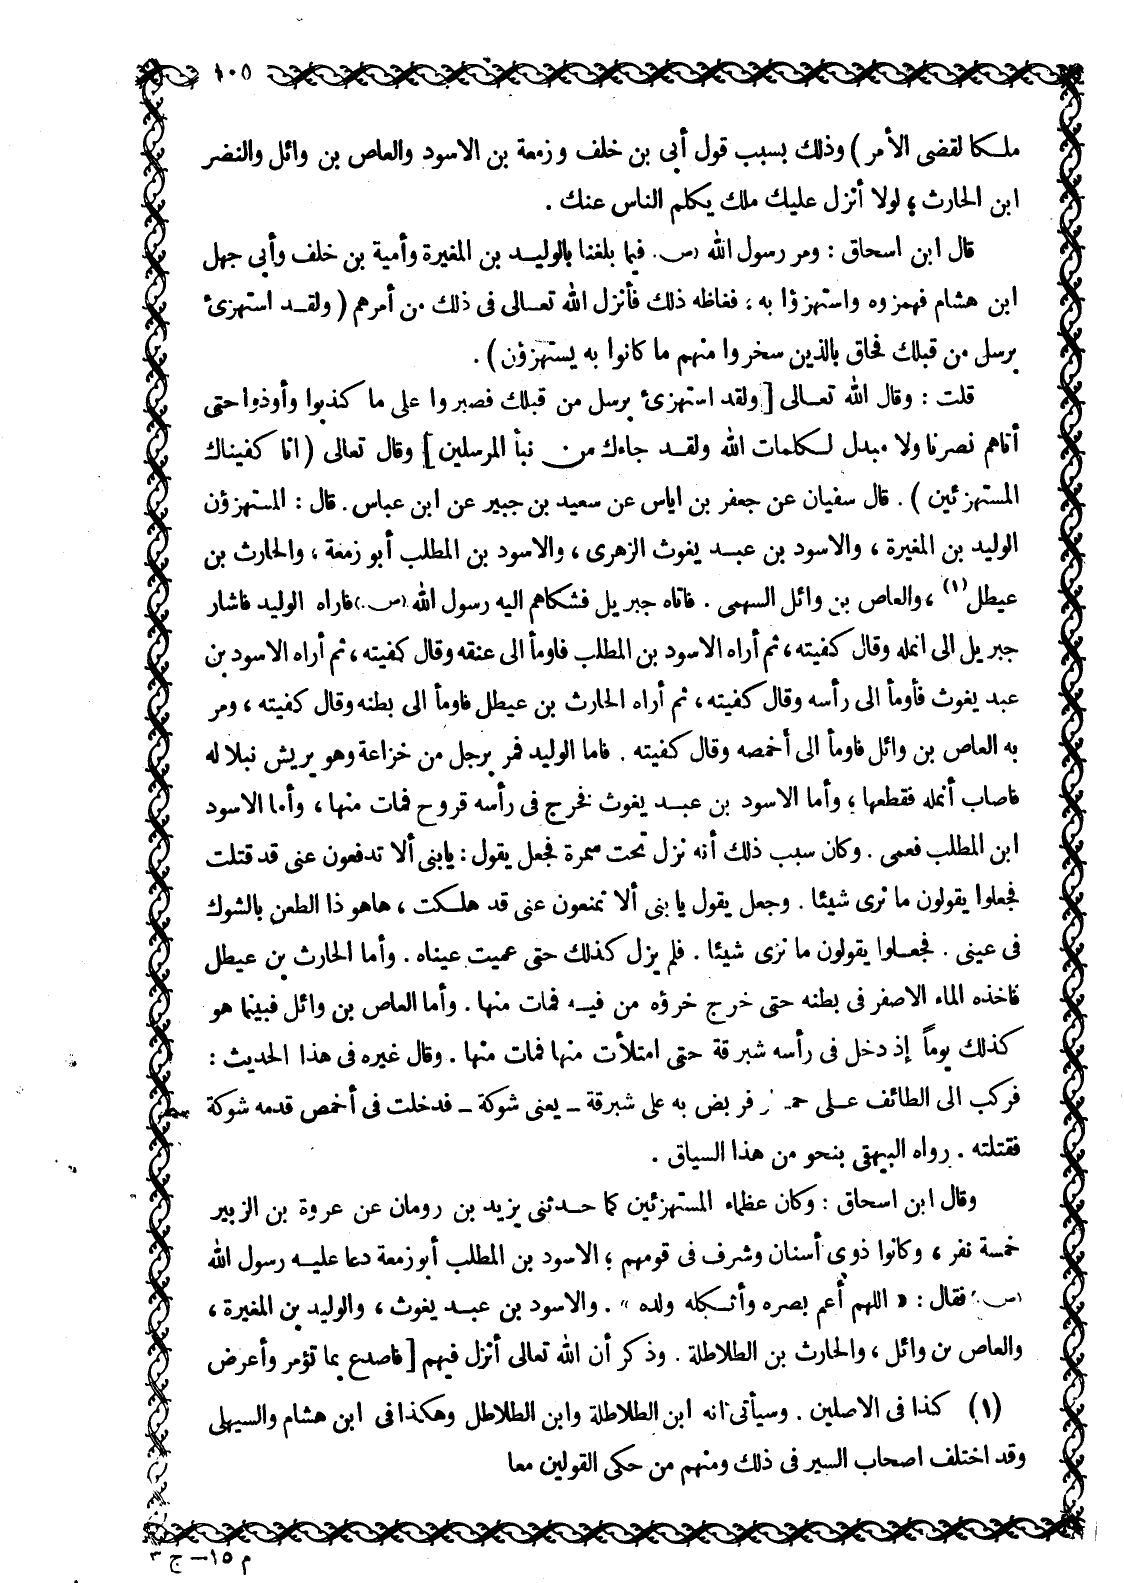 ١٠٥
ملكا لقضى الأمر ) وذلك بسبب قول أبى بن خلف وزمعة بن الاسود والعاص بن وائل والنضر
ابن الحارث ؛ لولا أنزل عليك ملك يكلم الناس عنك .
قال ابن اسحاق : ومر رسول الله (س) فيما بلغنا بالوليد بن المغيرة وأمية بن خلف وأبى جهل
ابن هشام فهمزوه واستهزؤا به ، فغاظه ذلك فأنزل الله تعالى فى ذلك من أمرهم ( ولقد استهزئ
برسل من قبلك فحاق بالذين سخروا منهم ما كانوا به يستهزؤن ) .
قلت : وقال الله تعالى [ ولقد استهزئ برسل من قبلك فصبروا على ما كذبوا وأوذوا حتى
أتاهم نصرنا ولا مبدل لكلمات الله ولقد جاءك من نبأ المرسلين ] وقال تعالى ( انا كفيناك
المستهزئين ) . قال سفيان عن جعفر بن اياس عن سعيد بن جبير عن ابن عباس . قال : المستهزؤن
الوليد بن المغيرة ، والاسود بن عبد يغوث الزهرى ، والاسود بن المطلب أبو زمعة ، والحارث بن
عيطل (١) ، والعاص بن وائل السهمى . فاتاه جبريل فشكاهم اليه رسول الله (س) فاراه الوليد فاشار
جبريل الى انمله وقال كفيته ، ثم أراه الاسود بن المطلب فاومأ الى عنقه وقال كفيته ، ثم أراه الاسود بن
عبد يغوث فأومأ الى رأسه وقال كفيته ، ثم أراه الحارث بن عيطل فاومأ الى بطنه وقال كفيته ، ومر
به العاص بن وائل فاومأ الى أخمصه وقال كفيته . فاما الوليد فمر برجل من خزاعة وهو يريش نبلا له
فاصاب أنمله فقطعها ؛ وأما الاسود بن عبد يغوث فخرج فى رأسه قروح فمات منها ، وأما الاسود
ابن المطلب فعمى . وكان سبب ذلك أنه نزل تحت سمرة فجعل يقول : يابنى ألا تدفعون عنى قد قتلت
فجعلوا يقولون ما نرى شيئا . وجعل يقول يا بنى ألا تمنعون عنى قد هلكت ، هاهو ذا الطعن بالشوك
فى عينى . فجعلوا يقولون ما نرى شيئا . فلم يزل كذلك حتى عميت عيناه . وأما الحارث بن عيطل
فاخذه الماء الاصفر فى بطنه حتى خرج خرؤه من فيه فمات منها . وأما العاص بن وائل فبينما هو
كذلك يوماً إذ دخل فى رأسه شبرقة حتى امتلأت منها فمات منها . وقال غيره فى هذا الحديث :
فركب الى الطائف على فربض به على شبرقة ـ يعنى شوكة ـ فدخلت فى أخمص قدمه شوكة
فقتلته . رواه البيهقى بنحو من هذا السياق .
وقال ابن اسحاق : وكان عظماء المستهزئين كما حدثنى يزيد بن رومان عن عروة بن الزبير
خمسة نفر ، وكانوا ذوى أسنان وشرف فى قومهم ؛ الاسود بن المطلب أبو زمعة دعا عليه رسول الله
(س) فقال : « اللهم أعم بصره وأثكله ولده » . والاسود بن عبد يغوث ، والوليد بن المغيرة ،
والعاص بن وائل ، والحارث بن الطلاطلة . وذكر أن الله تعالى أنزل فيهم [ فاصدع بما تؤمر وأعرض
(١) كذا فى الاصلين . وسيأتى انه ابن الطلاطلة وابن الطلاطل وهكذا فى ابن هشام والسهيلى
وقد اختلف اصحاب السير فى ذلك ومنهم من حكى القولين معا
م ١٥ ــ ج ٣